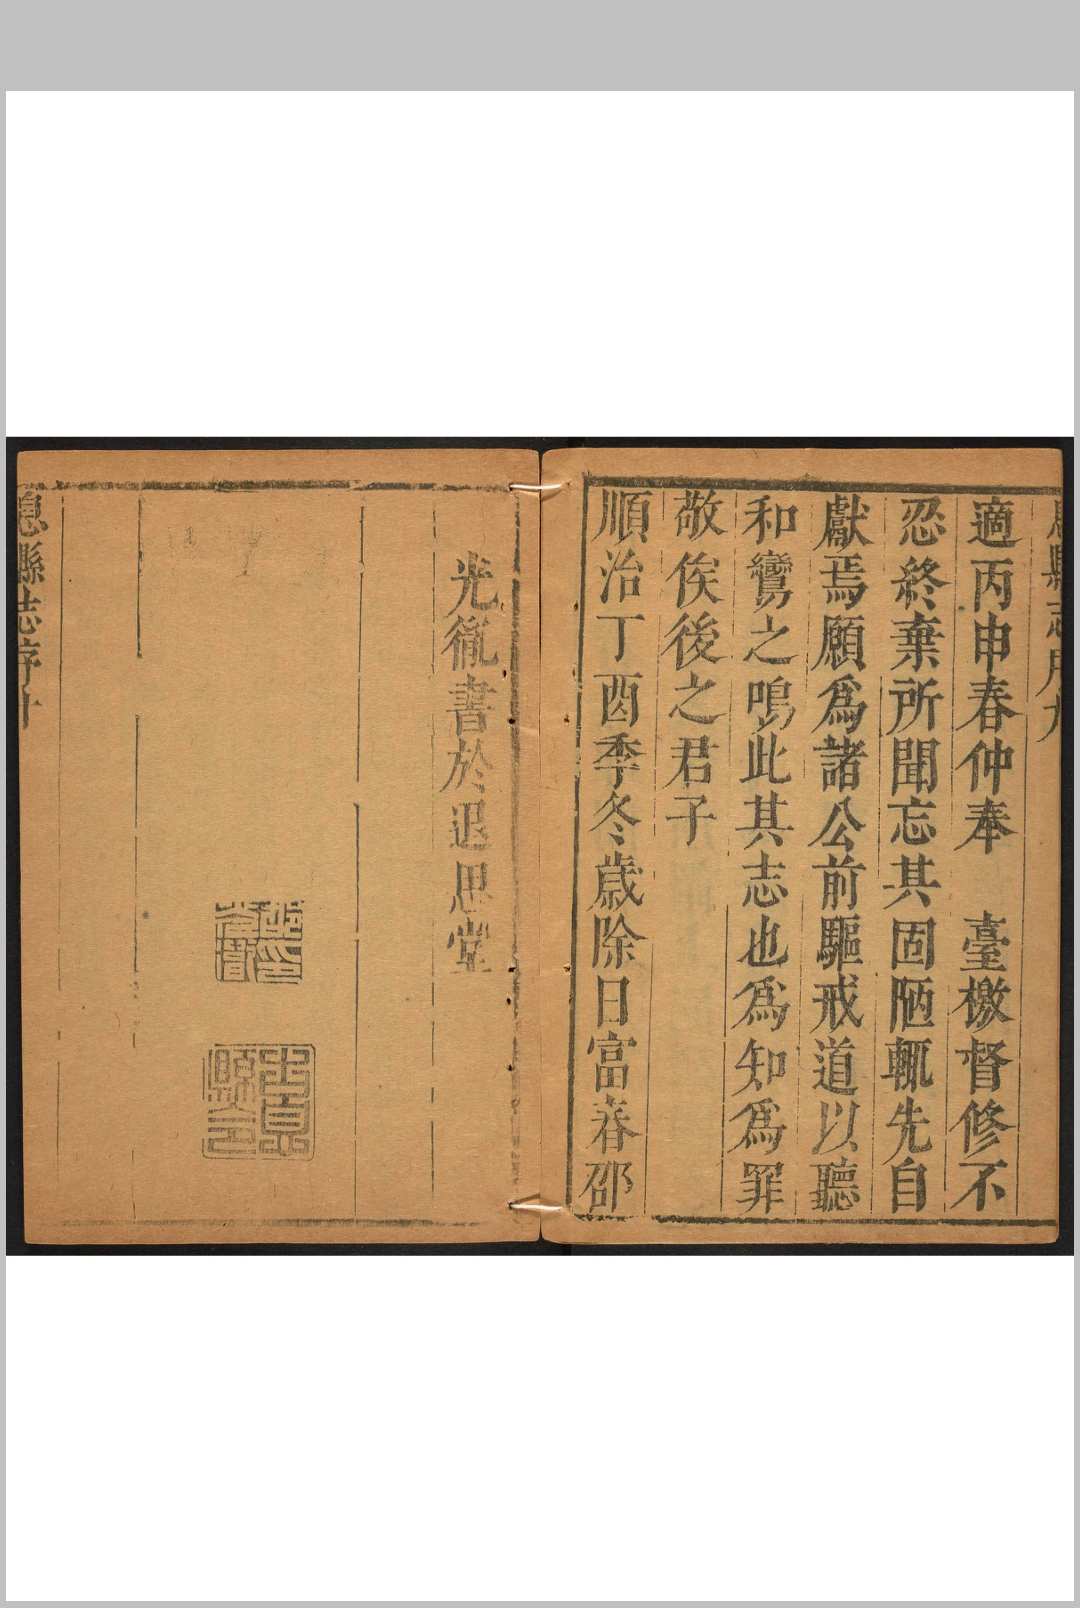 息縣志序九
適丙申春仲奉　臺檄督修不
忍終棄所聞忘其固陋輒先自
獻焉願爲諸公前驅戒道以聽
和鸞之鳴此其志也爲知爲罪
敬俟後之君子
順治丁酉季冬歲除日富春邵
光胤書於退思堂
息縣志序十